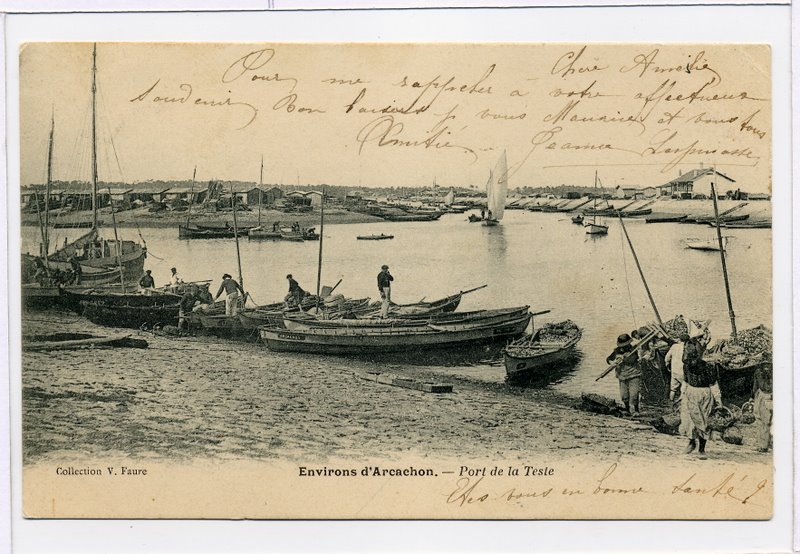 Chère Amélie
Pour me rappeler à votre affectueux
souvenir Bon baisers pr vous Maurice et vous tous
Amitié
Jeanne
Collection V. Faure
Environs d'Arcachon. — Port de la Teste
Etes vous en bonne santé ?